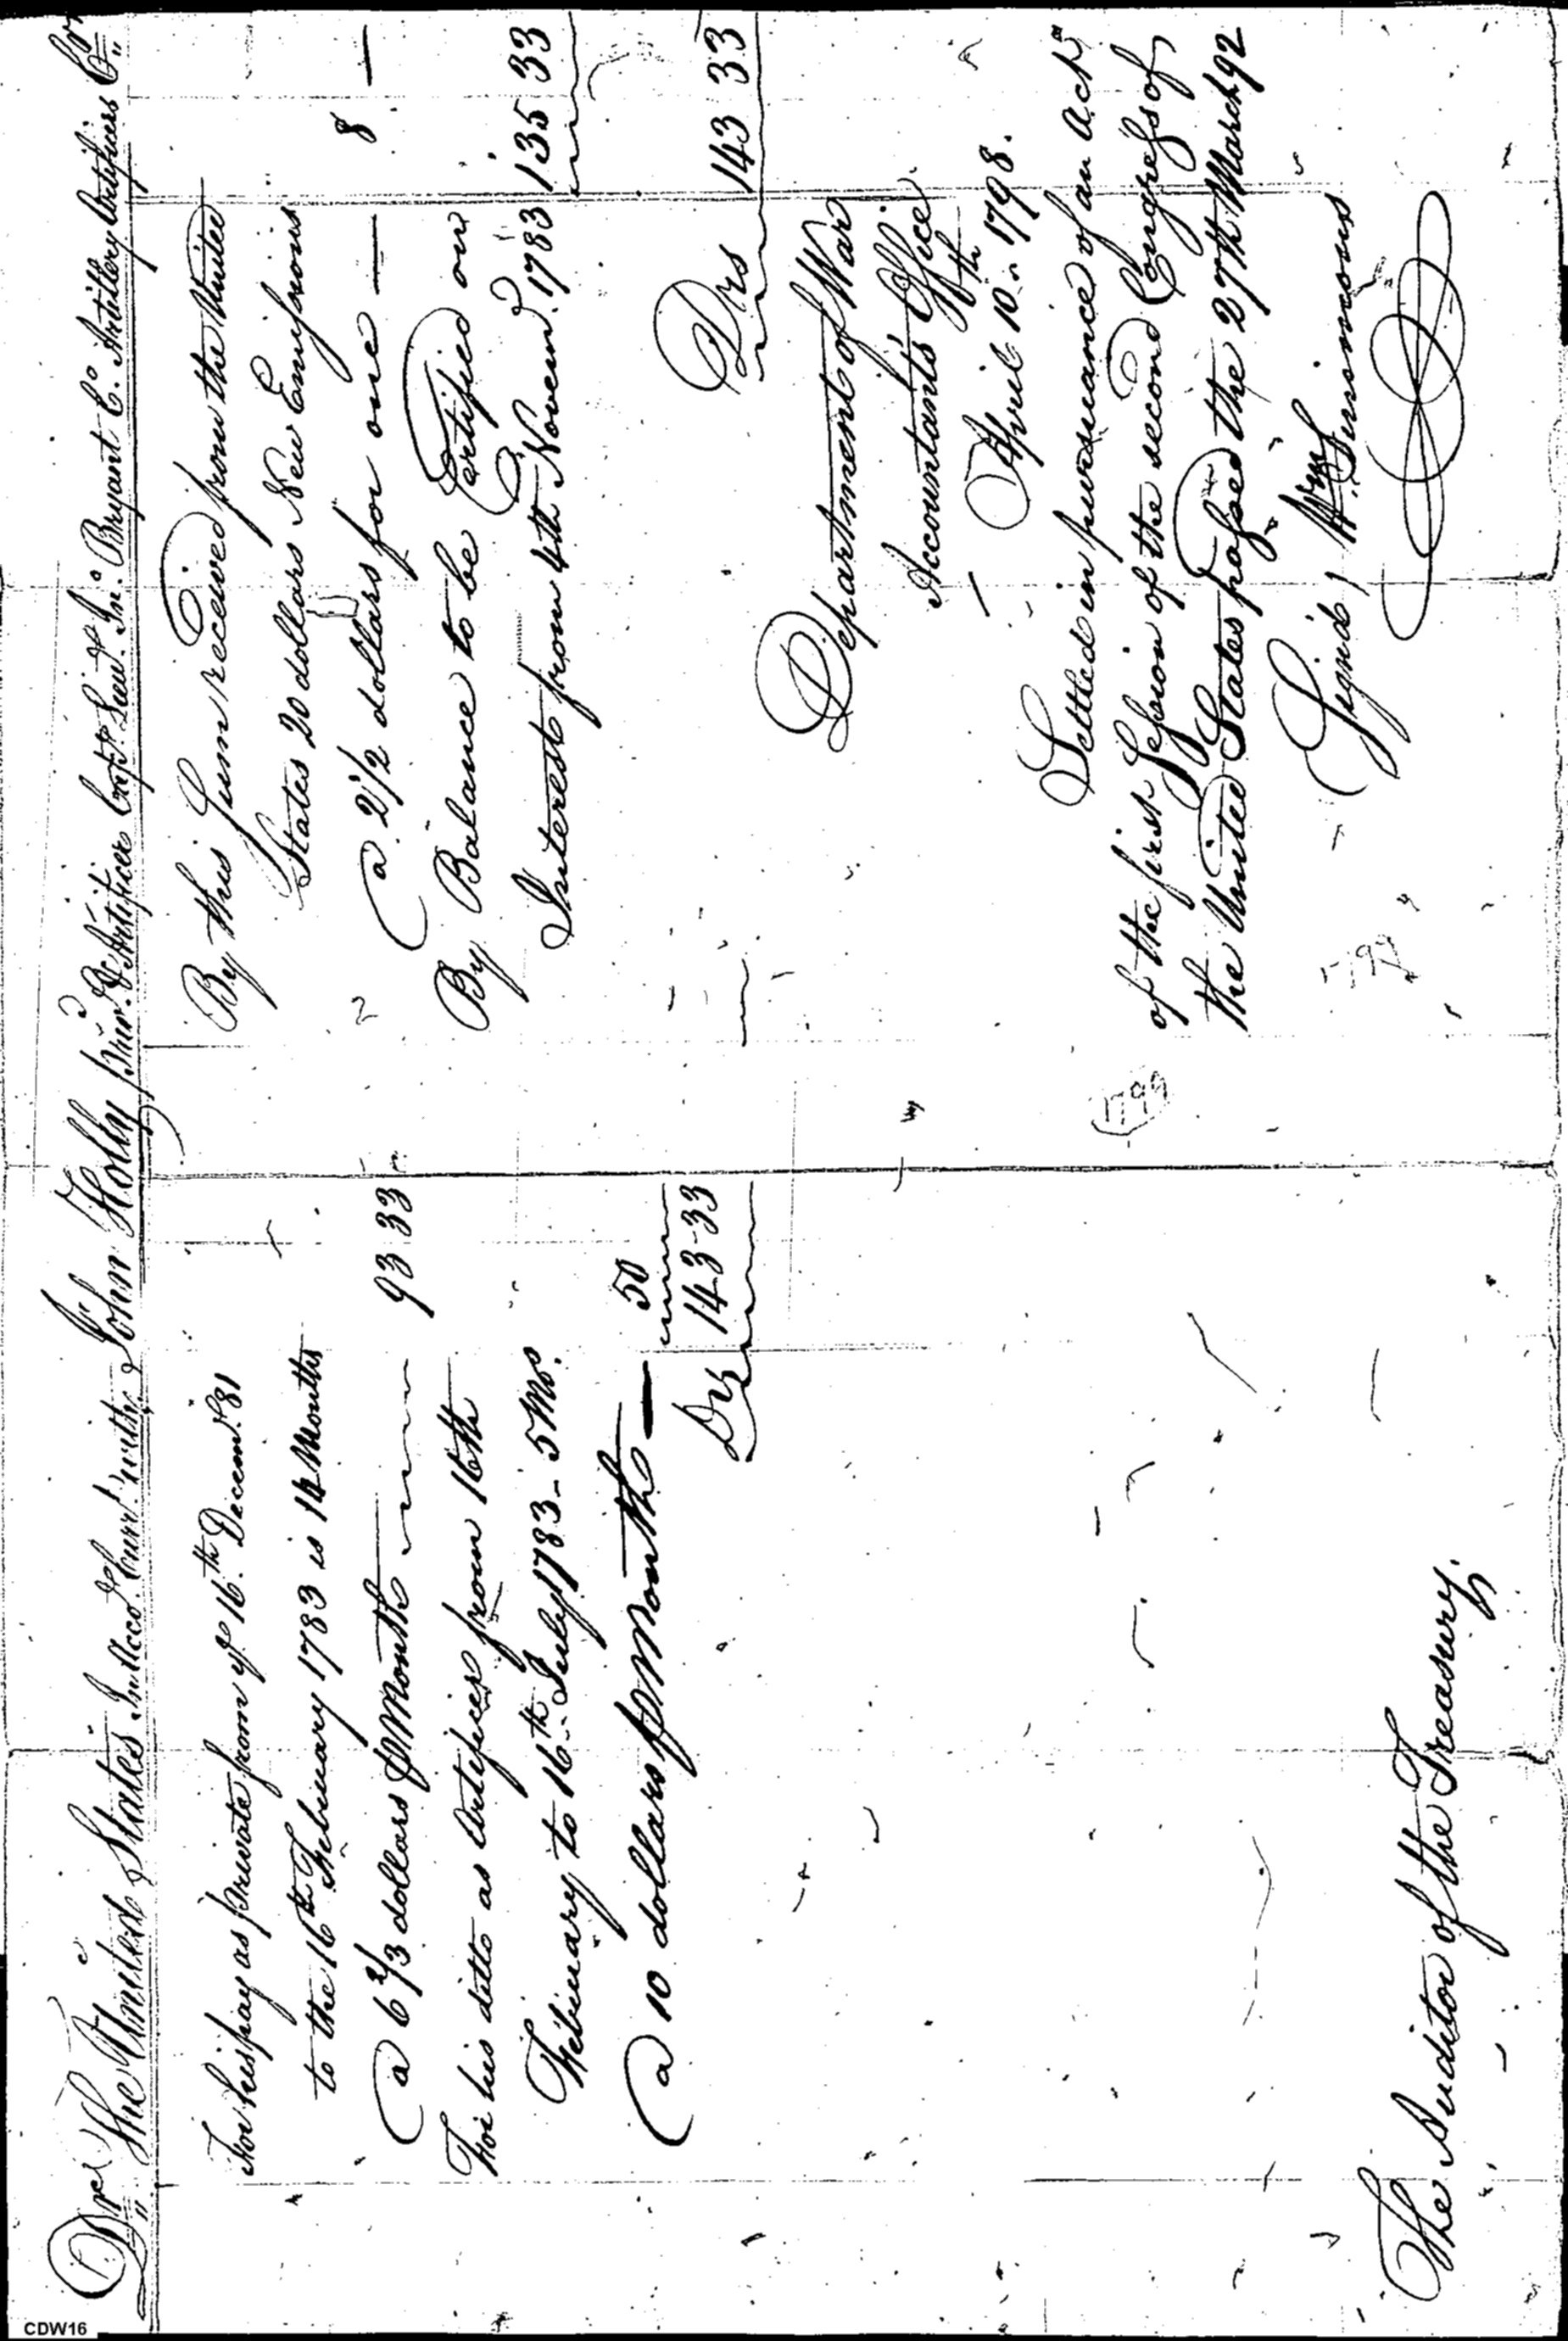 Dr. The United States In Acco. Curr.t with John Holly priv. & Artificer Capt. Lieut. Jn.o Bryant C.o Artillery Artificers Cr.
For his pay as private from ye 16.th Decem.r 81
to the 16th February 1783 is 14 Months
@ 6 2/3 dollars p Month 93 33
For his ditto as Artificer from 16th
February to 16th July 1783 - 5 Mo.
@ 10 dollars p Month — 50
Drs 143-33
The Auditor of the Treasury.
By this Sum received from the United
States 20 dollars New Emissions
@ 2 1/2 dollars for one — 8 —
By Balance to be Certified on
Interest from 4th Novem.r 1783 135 33
Drs 143 33
Department of War
Accountant's Office
April 10th 1798.
Settled in pursuance of an Act
of the first Session of the second Congress of
the United States passed the 27th March 92
Sign'd, Wm Simmons
CDW16